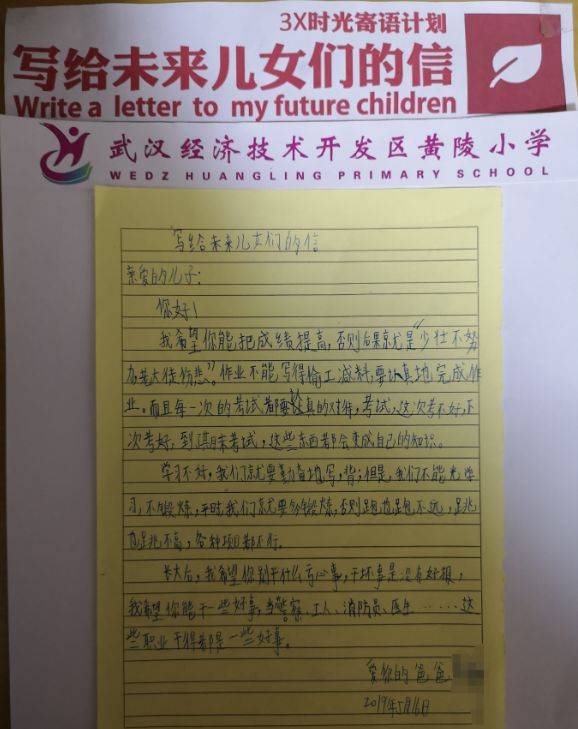 3X时光寄语计划
写给未来儿女们的信
Write a letter to my future children
武汉经济技术开发区黄陵小学
WEDZ HUANGLING PRIMARY SCHOOL
写给未来儿女们的信
亲爱的儿子:
你好!
我希望你能把成绩提高,否则后果就是“少壮不努
力老大徒伤悲”。作业不能写得偷工减料,要认真地完成作
业。而且每一次的考试都要认真的对待,考试,这次考不好,下
次考好,到期末考试,这些东西都会变成自己的知识。
学习不好,我们就要勤奋地写,背;但是,我们不能光学
习,不锻炼,平时我们就要多锻炼,否则跑也跑不远,跳
也跳不高,各种项目都不行。
长大后,我希望你别干什么亏心事,干坏事是没有好报,
我希望你能干一些好事,当警察、工人、消防员、医生……这
些职业干得都是一些好事。
爱你的爸爸
2019年5月16日